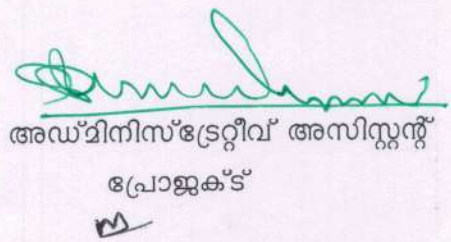 അഡ്മിനിസ്ട്രേറ്റീവ് അസിസ്റ്റന്റ്
പ്രോജക്ട്